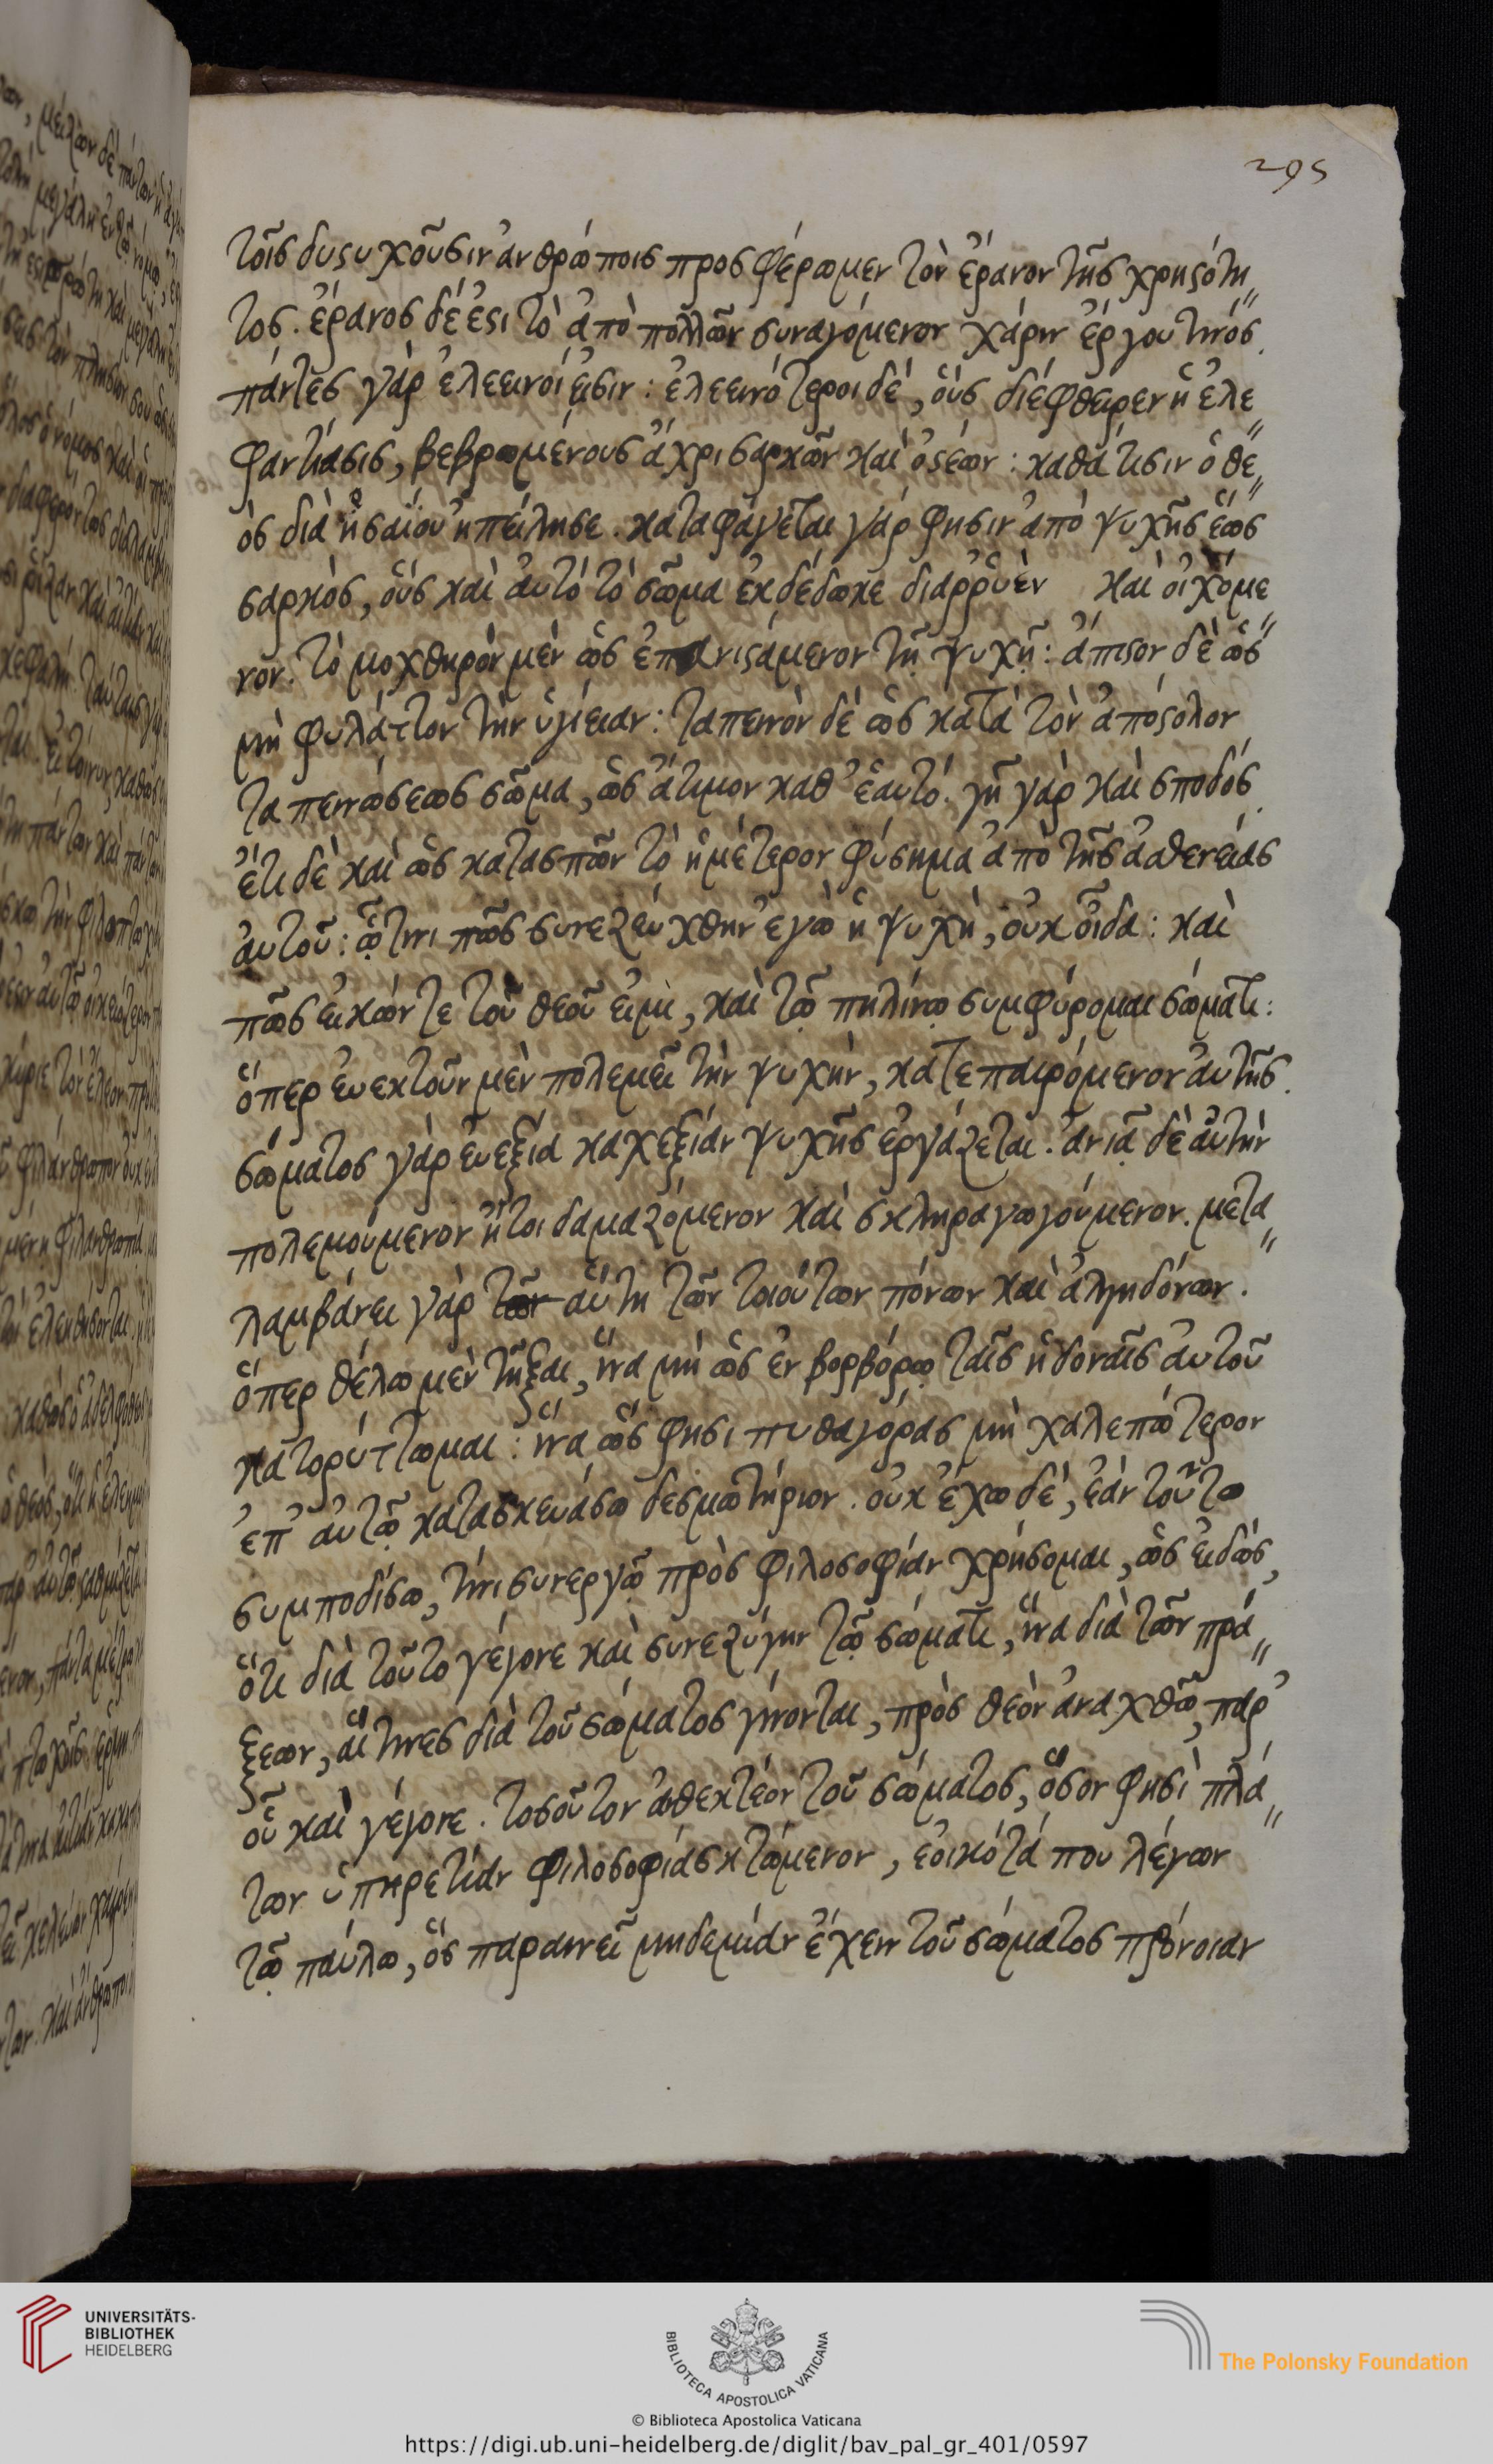 295
τοῖς δυστυχοῦσιν ἀνθρώποις προσφέρωμεν τὸν ἔρανον τῆς χρηστότη„
τος. ἔρανος δέ ἐστι τὸ ἀπὸ πολλῶν συναγόμενον χάριν ἔργου τινός.
πάντες γὰρ ἐλεεινοί εἰσιν: ἐλεεινότεροι δέ, οὓς διέφθειρεν ἡ ἐλε„
φαντίασις, βεβρωμένους ἄχρι σαρκῶν καὶ ὀστέων: καθά τισιν ὁ θε„
ὸς διὰ ἡσαΐου ἠπείλησε. καταφάγεται γάρ φησιν ἀπὸ ψυχῆς ἕως
σαρκὸς, οὓς καὶ αὐτό τὸ σῶμα ἐκδέδωκε διαρρυὲν καὶ οἰχόμε„
νον. τὸ μοχθηρὸν μὲν ὡς ἐπανιστάμενον τῇ ψυχῇ: ἄπιστον δὲ ὡς
μὴ φυλάττον τὴν ὑγίειαν: ταπεινὸν δὲ ὡς κατὰ τὸν ἀπόστολον
ταπεινώσεως σῶμα, ὡς ἄτιμον καθ' ἑαυτό. γῆ γὰρ καὶ σποδός.
ἔτι δὲ καὶ ὡς κατασπῶν τὸ ἡμέτερον φύσημα ἀπὸ τῆς ἀσθενείας
αὐτοῦ: ᾧτινι πῶς συνεζεύχθην ἐγὼ ἡ ψυχὴ, οὐκ οἶδα: καὶ
πῶς εἰκών τε τοῦ θεοῦ εἰμὶ, καὶ τῷ πηλίνῳ συμφύρομαι σώματι:
ὅπερ εὐεκτοῦν μὲν πολεμεῖ τὴν ψυχὴν, κατεπαιρόμενον αὐτῆς.
σώματος γὰρ εὐεξία καχεξίαν ψυχῆς ἐργάζεται. ἀνιᾷ δὲ αὐτὴν
πολεμούμενον ἤτοι δαμαζόμενον καὶ σκληραγωγούμενον. μετα„
λαμβάνει γὰρ τῶν αὕτη τῶν τοιούτων πόνων καὶ ἀλγηδόνων.
ὅπερ θέλω μὲν τῆξαι, ἵνα μὴ ὡς ἐν βορβόρῳ ταῖς ἡδοναῖς αὐτοῦ
κατορύττωμαι: ἵνα ὥς φησι πυθαγόρας μὴ χαλεπώτερον
ἐπ' αὐτῷ κατασκευάσω δεσμωτήριον. οὐκ ἔχω δέ, ἐάν τοῦτω
συμποδίσω, τίνι συνεργῷ πρὸς φιλοσοφίαν χρήσομαι, ὡς εἰδώς,
ὅτι διὰ τοῦτο γέγονε καὶ συνεζύγην τῷ σώματι, ἵνα διὰ τῶν πρά„
ξεων, αἵ τινες διὰ τοῦ σώματος γίνονται, πρὸς θεὸν ἀναχθῶ, παρ'
οὗ καὶ γέγονε. τοσοῦτον ἀνθεκτέον τοῦ σώματος, ὅσον φησὶ πλά„
των ὑπηρετίαν φιλοσοφίας κτώμενον, ἐοικότά που λέγων
τῷ παύλω, ὃς παραινεῖ μηδεμίαν ἔχειν τοῦ σώματος πρόνοιαν
UNIVERSITÄTS-
BIBLIOTHEK
HEIDELBERG
BIBLIOTECA APOSTOLICA VATICANA
The Polonsky Foundation
© Biblioteca Apostolica Vaticana
https://digi.ub.uni-heidelberg.de/diglit/bav_pal_gr_401/0597